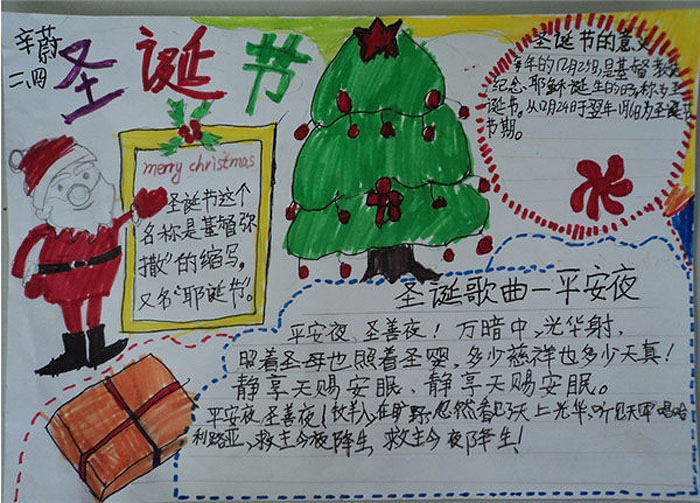 辛蔚
二、四
圣诞节
merry christmas
圣诞节这个
名称是基督弥
撒”的缩写。
又名“耶诞节”。
圣诞节的意义
每年的12月25日,是基督教
纪念、耶稣诞生的日,称为圣
诞节。从12月24日于翌年1月6日为圣诞
节期。
圣诞歌曲—平安夜
平安夜、圣善夜！万暗中,光华射,
照着圣母也照着圣婴,多少慈祥也多少天真！
静享天赐安眠、静享天赐安眠。
平安夜,圣善夜！牧羊人,在旷野,忽然看见了天上光华,听见天军唱哈
利路亚,救主今夜降生,救主今夜降生！